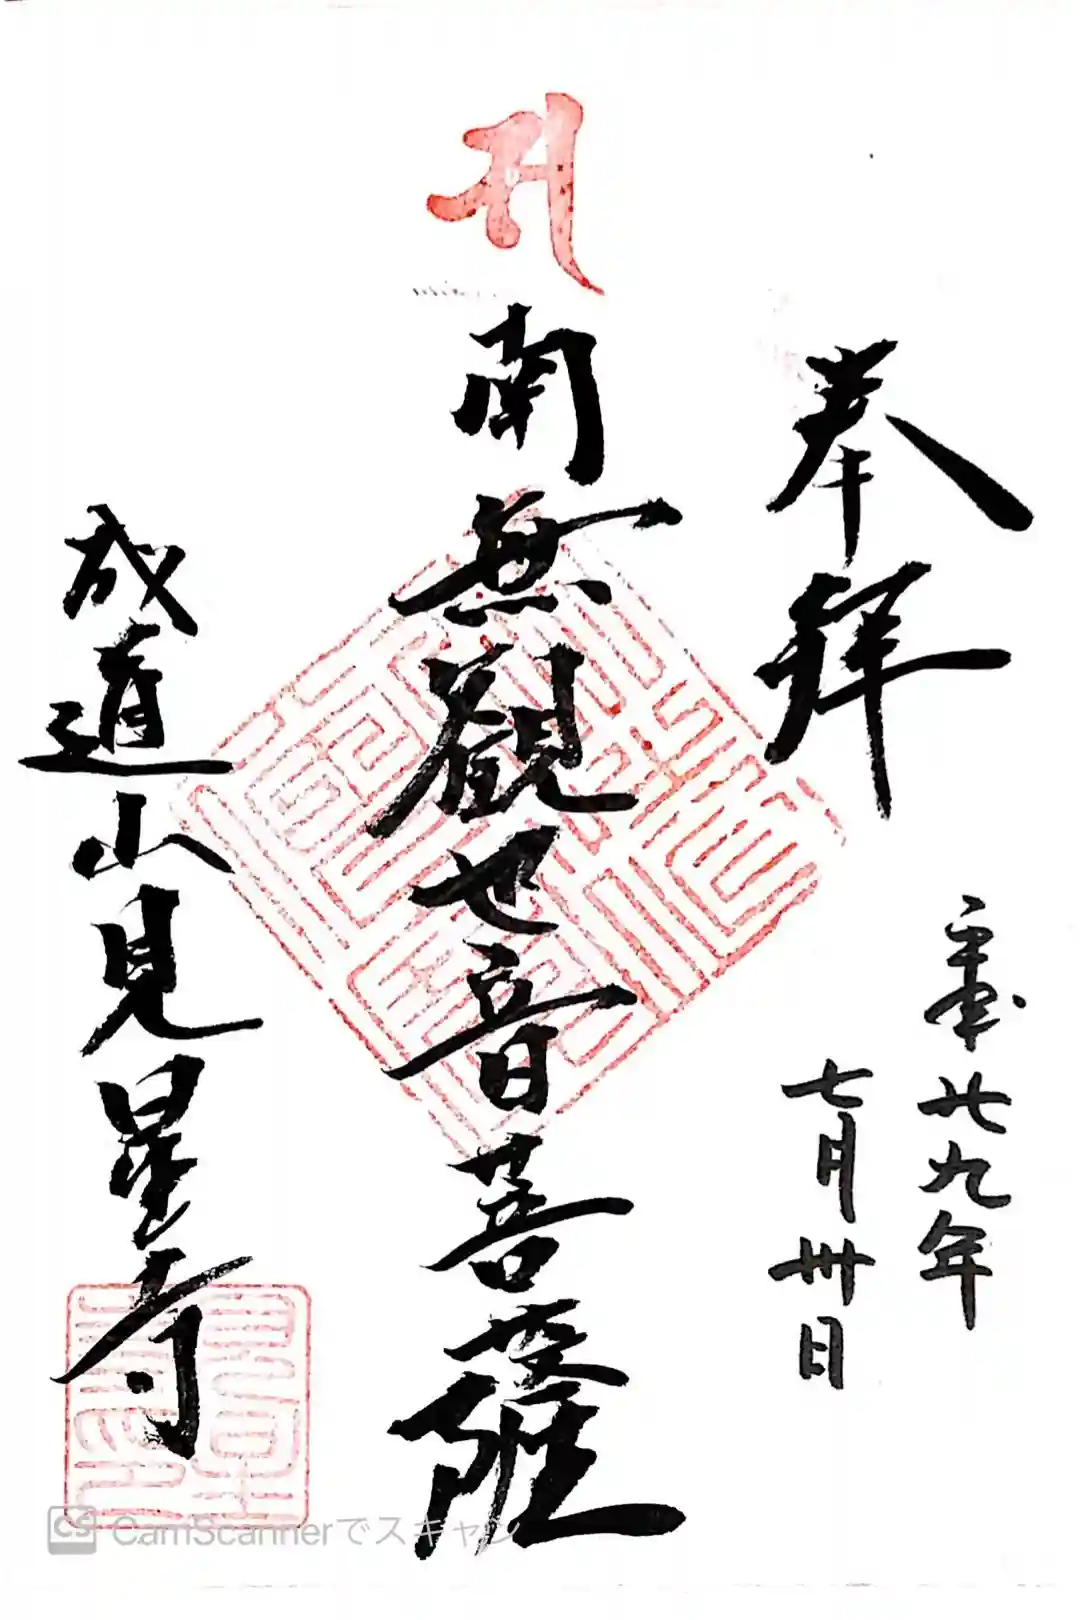 奉拝
平成廿九年
七月卅日
南無観世音菩薩
成道山見星寺
CamScannerでスキャン